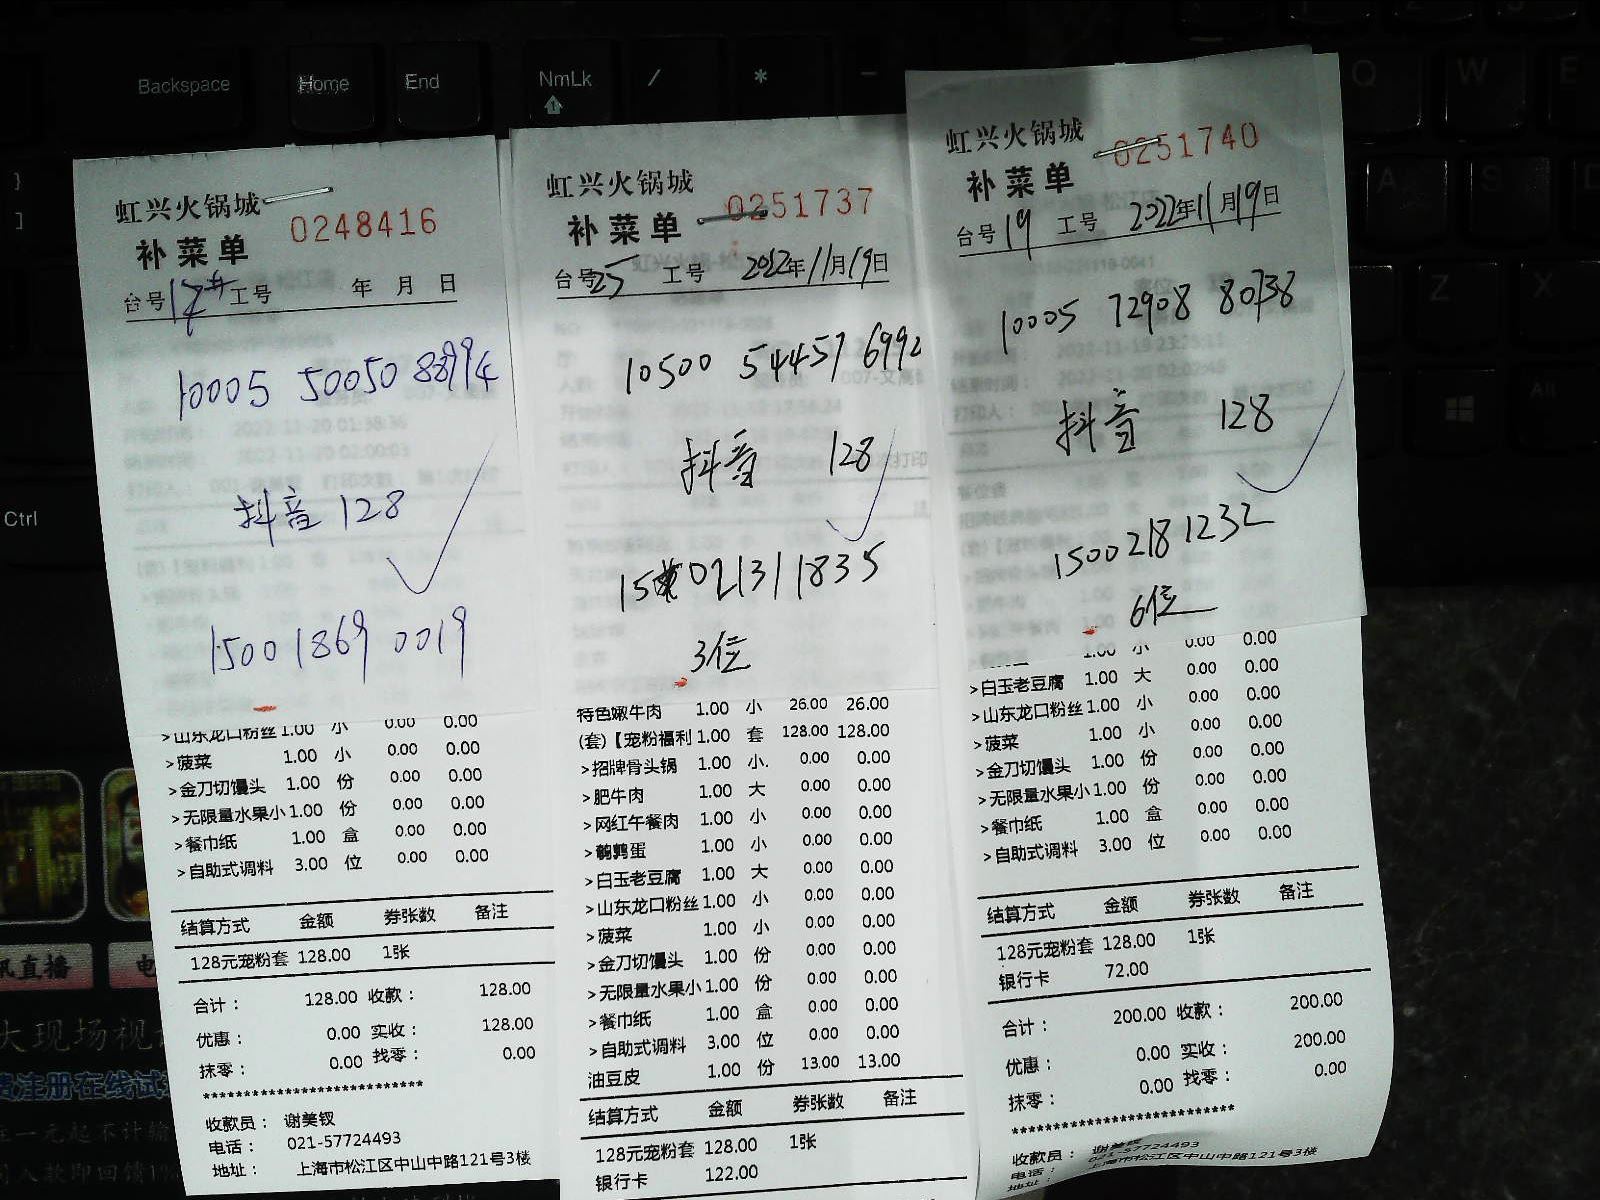 Backspace
Home
End
NmLk
/
*
-
Q
W
E
A
S
D
Z
X
Alt
}
]
Ctrl
虹兴火锅城
0248416
补菜单
台号12# 工号 年 月 日
10005 50050 88994
2022-11-20 01:38:36
2022-11-20 02:00:03
抖音 128
15001869 0019
>山东龙口粉丝 1.00 小 0.00 0.00
>菠菜 1.00 小 0.00 0.00
>金刀切馒头 1.00 份 0.00 0.00
>无限量水果小 1.00 份 0.00 0.00
>餐巾纸 1.00 盒 0.00 0.00
>自助式调料 3.00 位 0.00 0.00
结算方式 金额 券张数 备注
128元宠粉套 128.00 1张
合计： 128.00 收款： 128.00
优惠： 0.00 实收： 128.00
抹零： 0.00 找零： 0.00
******************************
收款员： 谢美钗
电话： 021-57724493
地址： 上海市松江区中山中路121号3楼
虹兴火锅城
0251737
补菜单
台号25 工号 2022年11月19日
10500 54457 6992
抖音 128
150021311835
3位
特色嫩牛肉 1.00 小 26.00 26.00
(套)【宠粉福利 1.00 套 128.00 128.00
>招牌骨头锅 1.00 小. 0.00 0.00
>肥牛肉 1.00 大 0.00 0.00
>网红午餐肉 1.00 小 0.00 0.00
>鹌鹑蛋 1.00 小 0.00 0.00
>白玉老豆腐 1.00 大 0.00 0.00
>山东龙口粉丝 1.00 小 0.00 0.00
>菠菜 1.00 小 0.00 0.00
>金刀切馒头 1.00 份 0.00 0.00
>无限量水果小 1.00 份 0.00 0.00
>餐巾纸 1.00 盒 0.00 0.00
>自助式调料 3.00 位 0.00 0.00
油豆皮 1.00 份 13.00 13.00
结算方式 金额 券张数 备注
128元宠粉套 128.00 1张
银行卡 122.00
虹兴火锅城
0251740
补菜单
台号19 工号 2022年11月19日
10005 72908 80738
抖音 128
15002181232
6位
1.00 小 0.00 0.00
>白玉老豆腐 1.00 大 0.00 0.00
>山东龙口粉丝 1.00 小 0.00 0.00
>菠菜 1.00 小 0.00 0.00
>金刀切馒头 1.00 份 0.00 0.00
>无限量水果小 1.00 份 0.00 0.00
>餐巾纸 1.00 盒 0.00 0.00
>自助式调料 3.00 位 0.00 0.00
结算方式 金额 券张数 备注
128元宠粉套 128.00 1张
银行卡 72.00
合计： 200.00 收款： 200.00
优惠： 0.00 实收： 200.00
抹零： 0.00 找零： 0.00
******************************
收款员： 谢美钗
电话： 021-57724493
地址： 上海市松江区中山中路121号3楼
讯直播
电
大现场视
费注册在线试